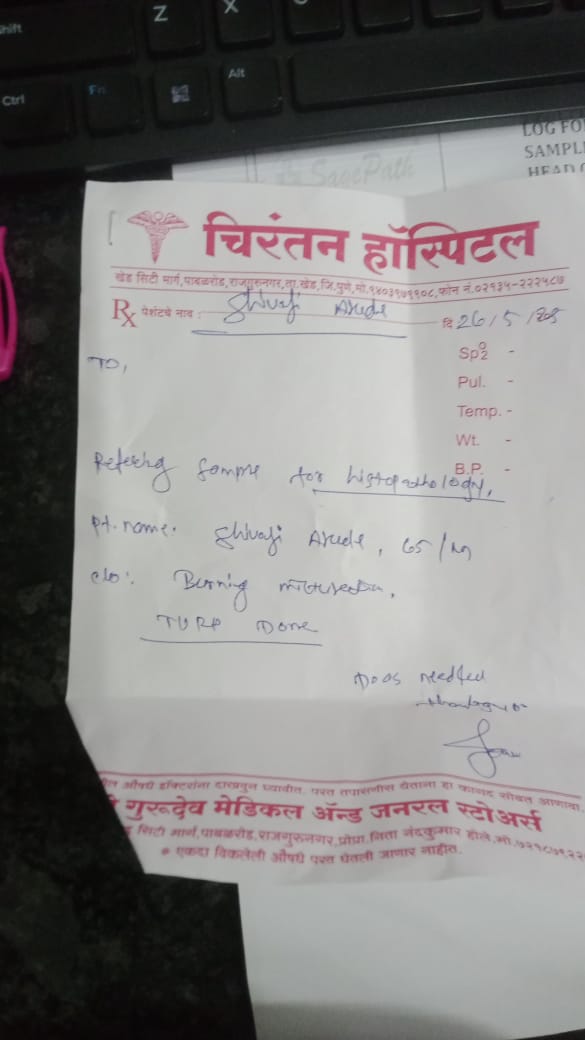 Shift
Z
X
Ctrl
Fn
Alt
LOG FO
SAMPL
HEAD
SagePath
चिरंतन हॉस्पिटल
खेड सिटी मार्ग,पाबळरोड,राजगुरुनगर,ता.खेड,जि.पुणे,मो.९४०३९७१९०८,फोन नं.०२१३५-२२२५८७
Rx पेशंटचे नाव : Shivaji Arude दि 26/5/205
Spo2 -
TO,
Pul. -
Temp. -
Wt. -
B.P. -
Refering sample for histopathology,
Pt. name. Shivaji Arude, 65/M
c/o: Burning micturation,
TURP Done
Do as needful
Jaw
औषधे डॉक्टरांना दाखवुन घ्यावीत. परत तपासणीस येताना हा कागद सोबत आणावा.
गुरूदेव मेडिकल ॲन्ड जनरल स्टोअर्स
सिटी मार्ग,पाबळरोड,राजगुरूनगर,प्रोप्रा.निता नंदकुमार होले,मो.७२१८७१२२
* एकदा विकलेली औषधे परत घेतली जाणार नाहीत.